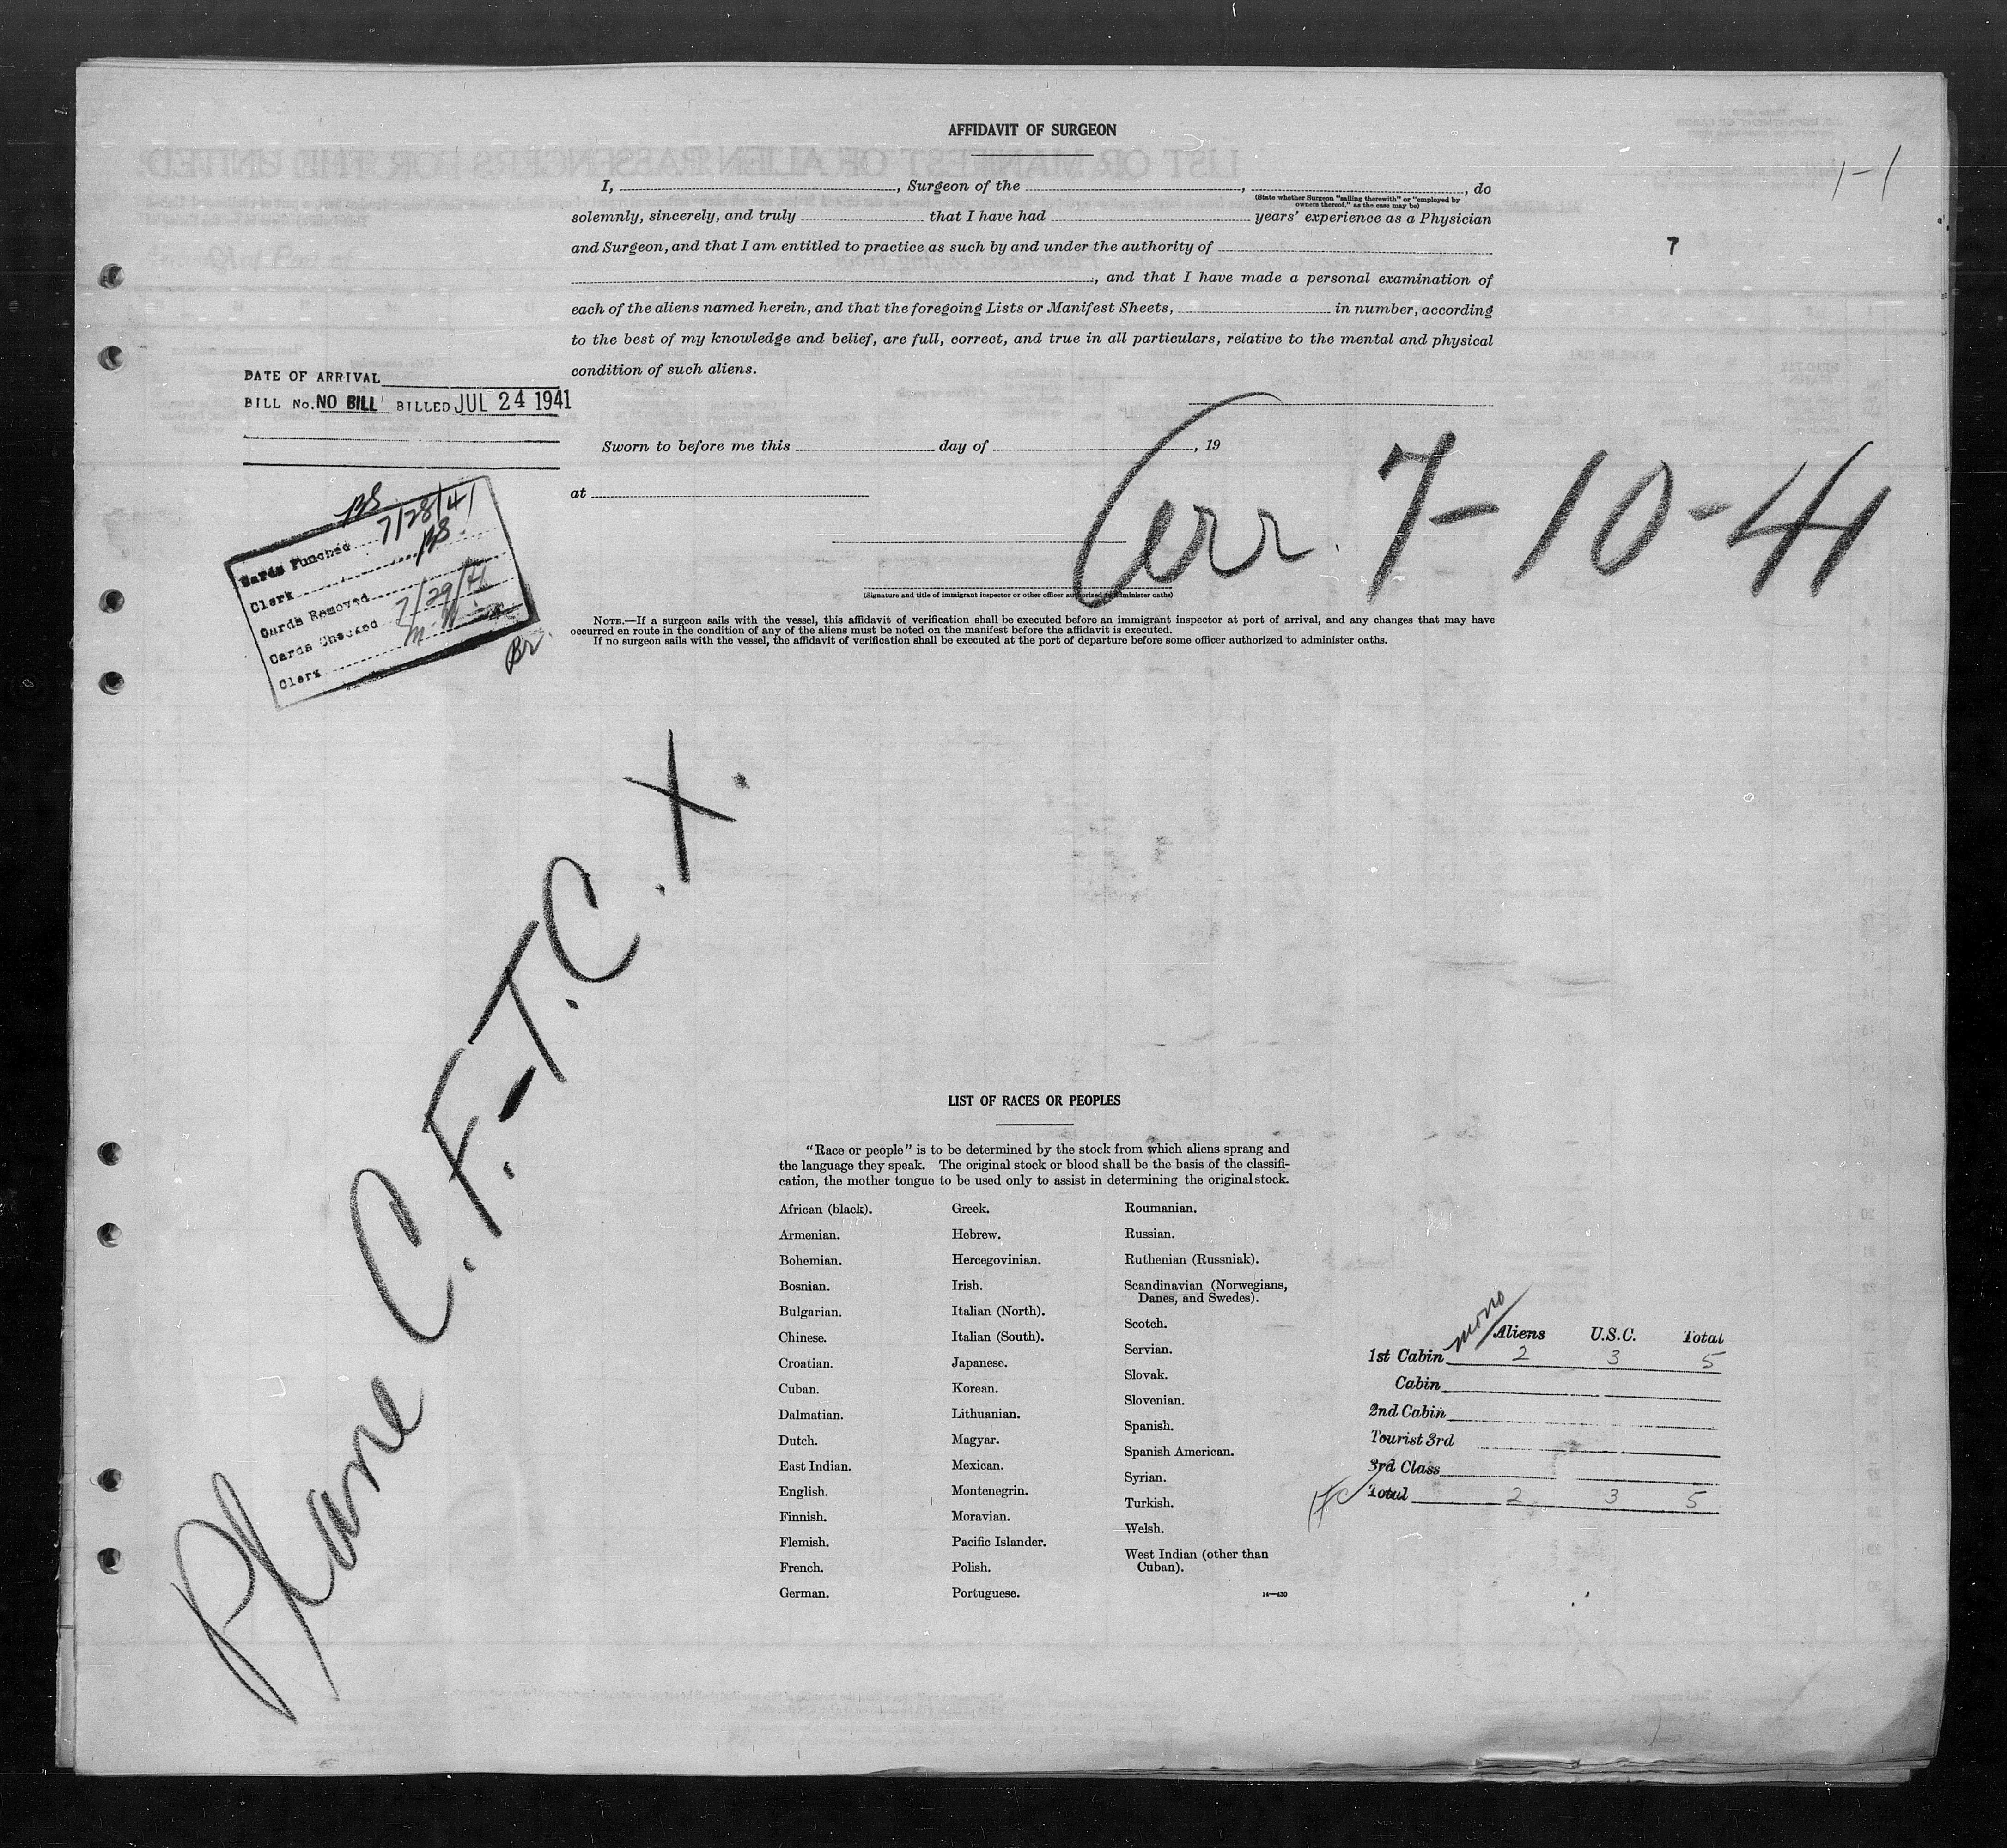 AFFIDAVIT OF SURGEON
1-1
I, , Surgeon of the , , do
(State whether Surgeon "sailing therewith" or "employed by
owners thereof," as the case may be)
solemnly, sincerely, and truly that I have had years' experience as a Physician
and Surgeon, and that I am entitled to practice as such by and under the authority of
7
, and that I have made a personal examination of
each of the aliens named herein, and that the foregoing Lists or Manifest Sheets, in number, according
to the best of my knowledge and belief, are full, correct, and true in all particulars, relative to the mental and physical
condition of such aliens.
DATE OF ARRIVAL
BILL No. NO BILL BILLED JUL 24 1941
Sworn to before me this day of , 19
at
arr. 7-10-41
Cards Punched 7/28/41
Clerk
Cards Removed
Cards Checked 7/29/41
Clerk
Br.
(Signature and title of immigrant inspector or other officer authorized to administer oaths)
NOTE.—If a surgeon sails with the vessel, this affidavit of verification shall be executed before an immigrant inspector at port of arrival, and any changes that may have
occurred en route in the condition of any of the aliens must be noted on the manifest before the affidavit is executed.
If no surgeon sails with the vessel, the affidavit of verification shall be executed at the port of departure before some officer authorized to administer oaths.
Plane C.F.-T.C.X.
LIST OF RACES OR PEOPLES
"Race or people" is to be determined by the stock from which aliens sprang and
the language they speak. The original stock or blood shall be the basis of the classifi-
cation, the mother tongue to be used only to assist in determining the original stock.
African (black).
Armenian.
Bohemian.
Bosnian.
Bulgarian.
Chinese.
Croatian.
Cuban.
Dalmatian.
Dutch.
East Indian.
English.
Finnish.
Flemish.
French.
German.
Greek.
Hebrew.
Hercegovinian.
Irish.
Italian (North).
Italian (South).
Japanese.
Korean.
Lithuanian.
Magyar.
Mexican.
Montenegrin.
Moravian.
Pacific Islander.
Polish.
Portuguese.
Roumanian.
Russian.
Ruthenian (Russniak).
Scandinavian (Norwegians,
Danes, and Swedes).
Scotch.
Servian.
Slovak.
Slovenian.
Spanish.
Spanish American.
Syrian.
Turkish.
Welsh.
West Indian (other than
Cuban).
14—430
mono
Aliens U.S.C. Total
1st Cabin 2 3 5
Cabin
2nd Cabin
Tourist 3rd
3rd Class
Total 2 3 5